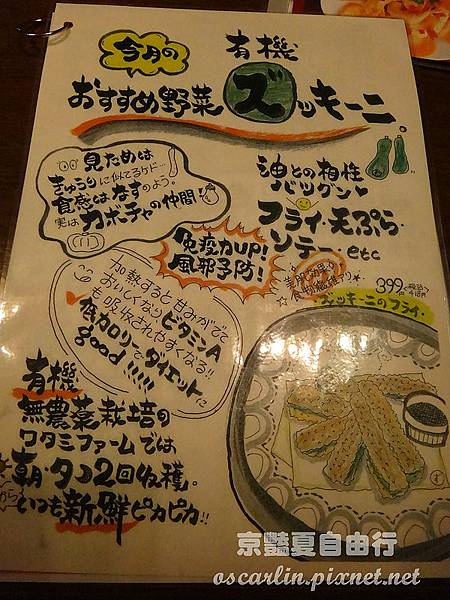 今月の
おすすめ野菜
有機
ズッキーニ。
見ためは
きゅうりに似てるケド…
食感はなすのよう。
実はカボチャの仲間!
油との相性
バツグン
フライ・天ぷら・
ソテー・etc
免疫力UP!
風邪予防!
加熱すると甘みがでて
おいしくなりビタミンA
も吸収されやすくなる!!
低カロリーでダイエットに
good!!!!!
399円
ズッキーニのフライ
有機
無農薬栽培の
ワタミファームでは
朝・夕の2回収穫。
だからいつも新鮮ピカピカ!!
京豔夏自由行
oscarlin.pixnet.net